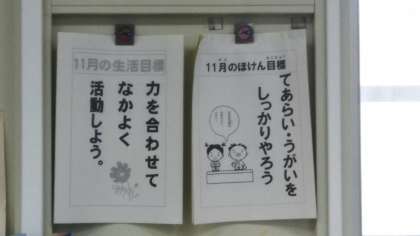 11月の生活目標
力を合わせて
なかよく
活動しよう。
11月のほけん目標
てあらい・うがいを
しっかりやろう